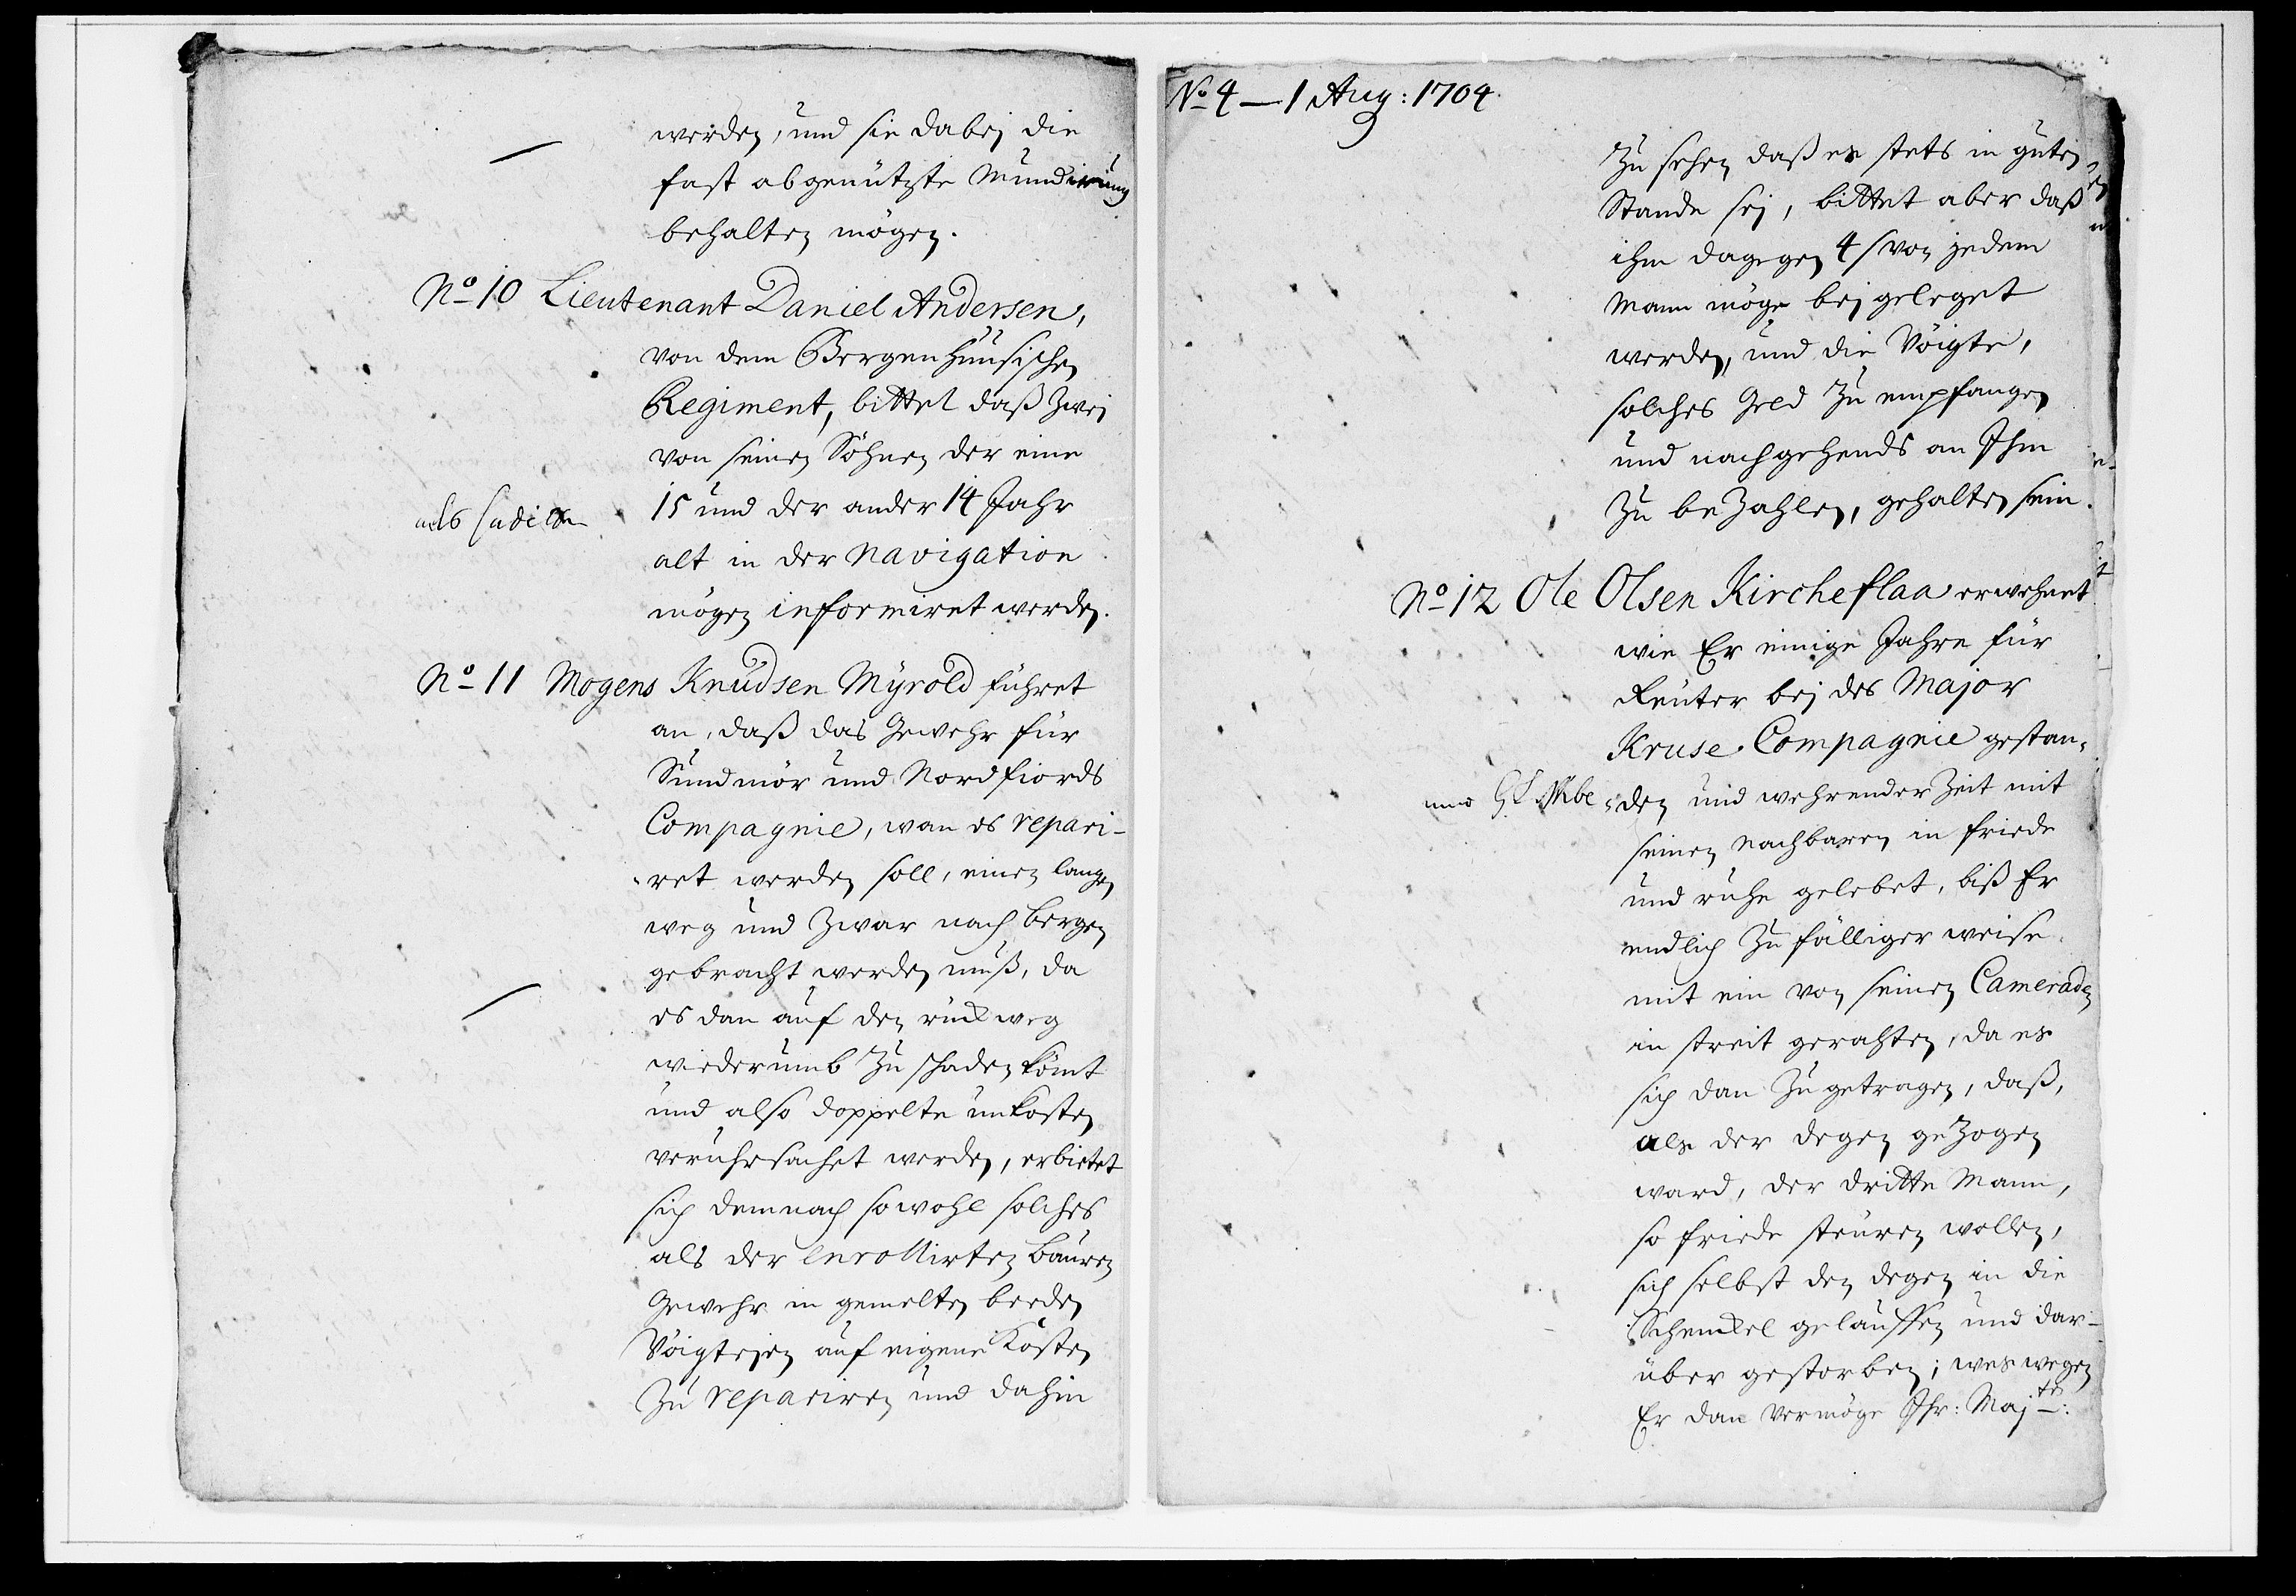 werden, und sie dabej die
fast abgenützte Mundirung
behalten mögen.
No 10 Lieutenant Daniel Andersen,
von dem Bergenhuusischen
Regiment, bittet daß zwei
von seinen Söhnen der eine
15 und der ander 14 Jahr
alt in der Navigation
mögen informiret werden.
No 11 Mogens Knudsen Myrold führet
an, daß das Gewehr für
Sundmör und Nordfiords
Compagnie, wan es repari-
ret werden soll, einen langen
weg und zwar nach Bergen
gebracht werden muß, da
es dan auf den rückweg
wiederumb zu schaden kömt
und also doppelte unkosten
veruhrsachet werden, erbietet
sich demnach sowohl solches
als der enrollirten Bauren
Gewehr in gemelten beeden
Voigtejen auf eigene Kosten
zu repariren und dahin
No 4 — 1 Aug: 1704
zu sehen daß es stets in guten
Stande sej, bittet aber daß
ihm dagegen 4 s von jedem
Mann möge bejgeleget
werden, und die Vöigte,
solches Geld zu empfangen
und nachgehends an Ihm
zu bezahlen, gehalten sein.
No 12 Ole Olsen Kircheflaa erwehnet
wie Er einige Jahre für
Reuter bej des Major
Kruse Compagnie gestan-
den und wehrender Zeit mit
seinen Nachbaren in friede
und ruhe gelebet, biß Er
endlich zufälliger weise
mit ein von seinen Cameraden
in streit gerahten, da es
sich dan zugetragen, daß,
als der degen gezogen
ward, der dritte Mann,
so friede steuren wollen,
sich selbst den degen in die
Schenckel gelauffen und dar-
über gestorben; weswegen
Er dan vermöge Ihr: Maj:ts